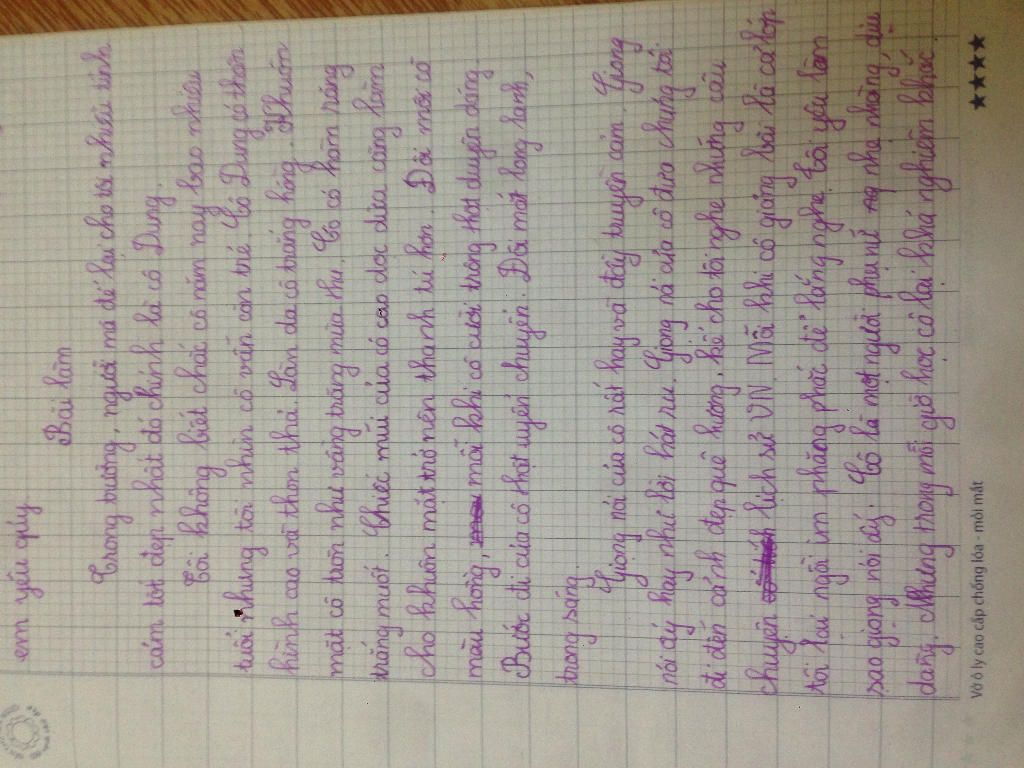 em yêu quý.
Bài làm
Trong trường, người mà để lại cho tôi nhiều tình
cảm tốt đẹp nhất đó chính là cô Dung.
Tôi không biết chắc cô năm nay bao nhiêu
tuổi nhưng tôi nhìn cô vẫn còn trẻ. Cô Dung có thân
hình cao và thon thả. Làn da cô trắng hồng. Khuôn
mặt cô tròn như vầng trăng mùa thu. Cô có hàm răng
trắng muốt. Chiếc mũi của cô cao dọc dừa càng làm
cho khuôn mặt trở nên thanh tú hơn. Đôi môi cô
màu hồng, mỗi khi cô cười trông thật duyên dáng.
Bước đi của cô thật uyển chuyển. Đôi mắt long lanh,
trong sáng.
Giọng nói của cô rất hay và đầy truyền cảm. Giọng
nói ấy hay như lời hát ru. Giọng nói của cô đưa chúng tôi
đi đến cánh đẹp quê hương, kể cho tôi nghe những câu
chuyện lịch sử VN. Mỗi khi cô giảng bài là cả lớp
tôi lại ngồi im phăng phắc để lắng nghe. Tôi yêu làm
sao giọng nói ấy. Cô là một người phụ nữ nhẹ nhàng, dịu
dàng. Nhưng trong mỗi giờ học cô lại khá nghiêm khắc.
Vở ô ly cao cấp chống lóa - mỏi mắt
★★★★